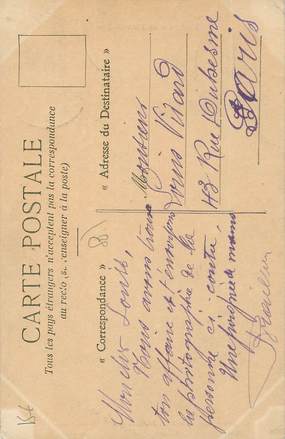 CARTE POSTALE
Tous les pays étrangers n'acceptent pas la correspondance
au recto (s. renseigner à la poste)
« Correspondance »
« Adresse du Destinataire »
Monsieur Louis,
Nous avons trouvé
ton affaire et t'envoyons
la photographie de la
personne ci contre.
Une poignée de mains
Monsieur
Louis Virard
43 Rue Duhesme
Paris